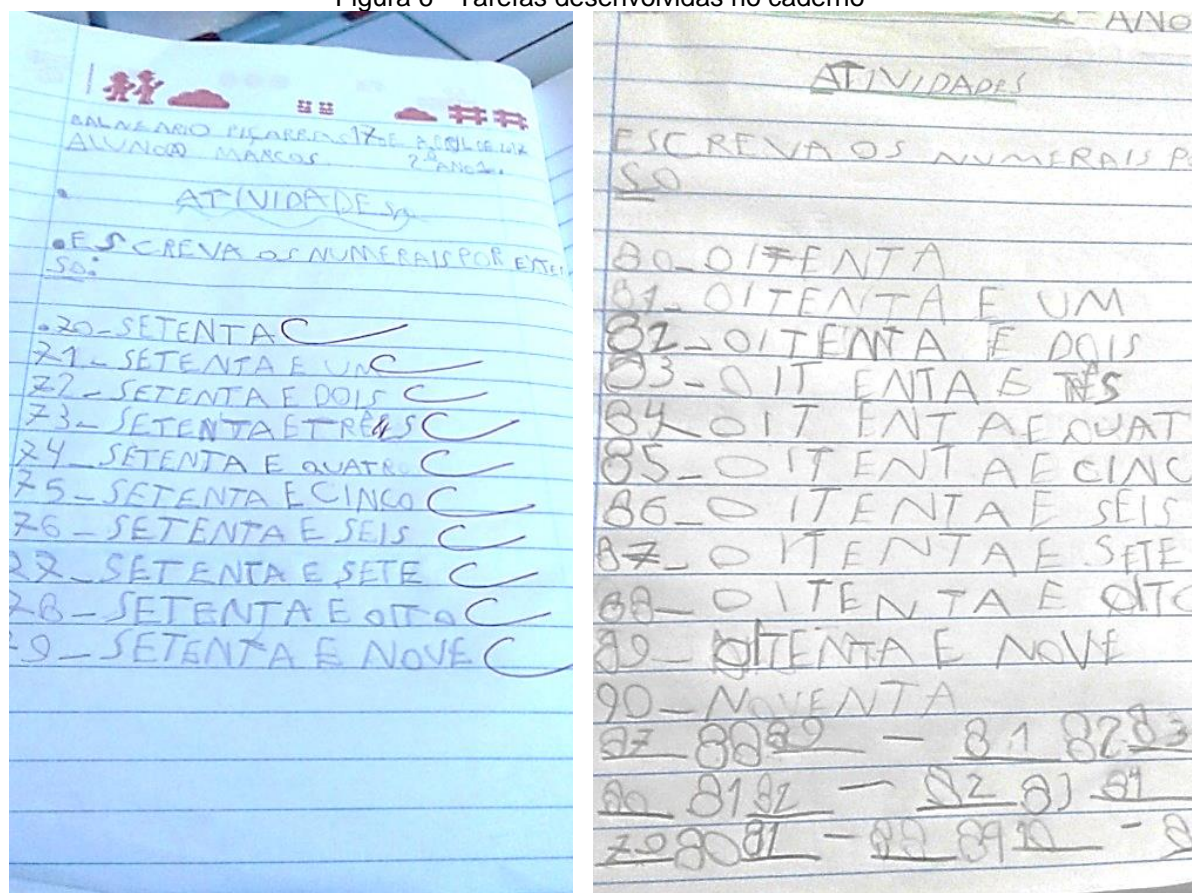 Figura 6 - Tarefas desenvolvidas no caderno
BALNEÁRIO PIÇARRAS 17 DE ABRIL DE
ALUNO MARCOS 2º ANO
ATIVIDADES
•ESCREVA OS NUMERAIS POR EXTEN
SO:
•70-SETENTA C
71-SETENTA E UM C
72-SETENTA E DOIS C
73-SETENTA E TRÊS C
74-SETENTA E QUATRO C
75-SETENTA E CINCO C
76-SETENTA E SEIS C
77-SETENTA E SETE C
78-SETENTA E OITO C
9-SETENTA E NOVE C
ANO
ATIVIDADES
ESCREVA OS NUMERAIS P
SO
80-OITENTA
81-OITENTA E UM
82-OITENTA E DOIS
83-OITENTA E TÊS
84-OITENTA E QUAT
85-OITENTA E CINC
86-OITENTA E SEIS
87-OITENTA E SETE
88-OITENTA E OITO
89-OITENTA E NOVE
90-NOVENTA
87 88 89 - 81 82 83
80 81 82 - 82 83 84
79 80 81 - 88 89 90 - 8